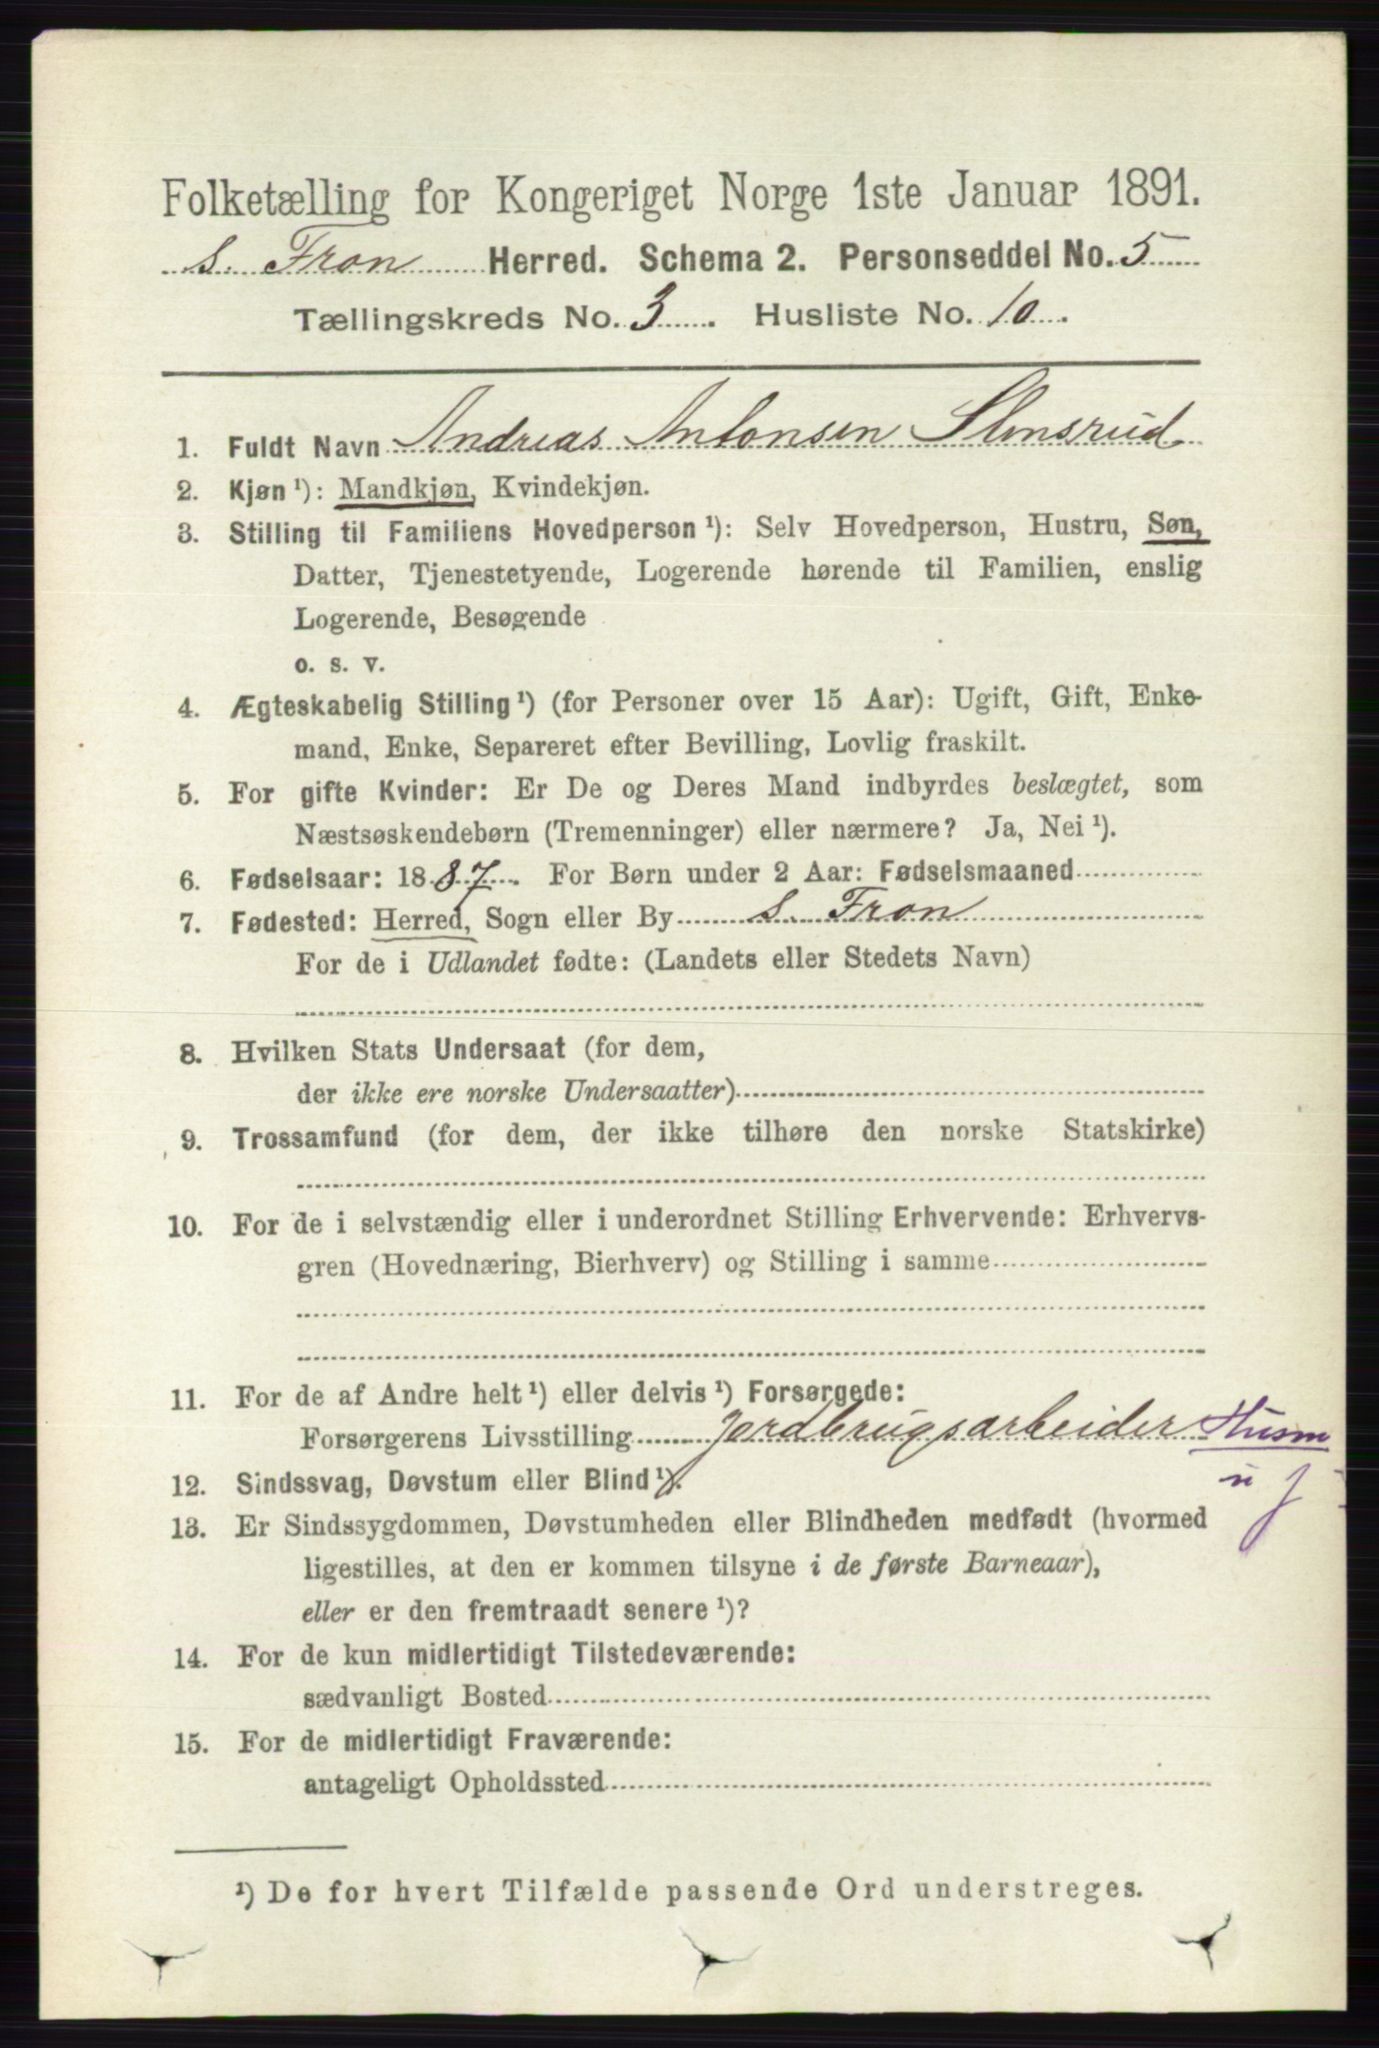 Folketælling for Kongeriget Norge 1ste Januar 1891.
s. Fron Herred. Schema 2. Personseddel No. 5
Tællingskreds No. 3. Husliste No. 10.
1. Fuldt Navn Andreas Antonsen Stensrud
2. Kjøn ¹): Mandkjøn, Kvindekjøn.
3. Stilling til Familiens Hovedperson ¹): Selv Hovedperson, Hustru, Søn,
Datter, Tjenestetyende, Logerende hørende til Familien, enslig
Logerende, Besøgende
o. s. v.
4. Ægteskabelig Stilling ¹) (for Personer over 15 Aar): Ugift, Gift, Enke-
mand, Enke, Separeret efter Bevilling, Lovlig fraskilt.
5. For gifte Kvinder: Er De og Deres Mand indbyrdes beslægtet, som
Næstsøskendebørn (Tremenninger) eller nærmere? Ja, Nei ¹).
6. Fødselsaar: 1887. For Børn under 2 Aar: Fødselsmaaned
7. Fødested: Herred, Sogn eller By s. Fron
For de i Udlandet fødte: (Landets eller Stedets Navn)
8. Hvilken Stats Undersaat (for dem,
der ikke ere norske Undersaatter)
9. Trossamfund (for dem, der ikke tilhøre den norske Statskirke)
10. For de i selvstændig eller i underordnet Stilling Erhvervende: Erhvervs-
gren (Hovednæring, Bierhverv) og Stilling i samme
11. For de af Andre helt ¹) eller delvis ¹) Forsørgede:
Forsørgerens Livsstilling Jordbrugsarbeider Husm
u j
12. Sindssvag, Døvstum eller Blind ¹).
13. Er Sindssygdommen, Døvstumheden eller Blindheden medfødt (hvormed
ligestilles, at den er kommen tilsyne i de første Barneaar),
eller er den fremtraadt senere ¹)?
14. For de kun midlertidigt Tilstedeværende:
sædvanligt Bosted
15. For de midlertidigt Fraværende:
antageligt Opholdssted
¹) De for hvert Tilfælde passende Ord understreges.